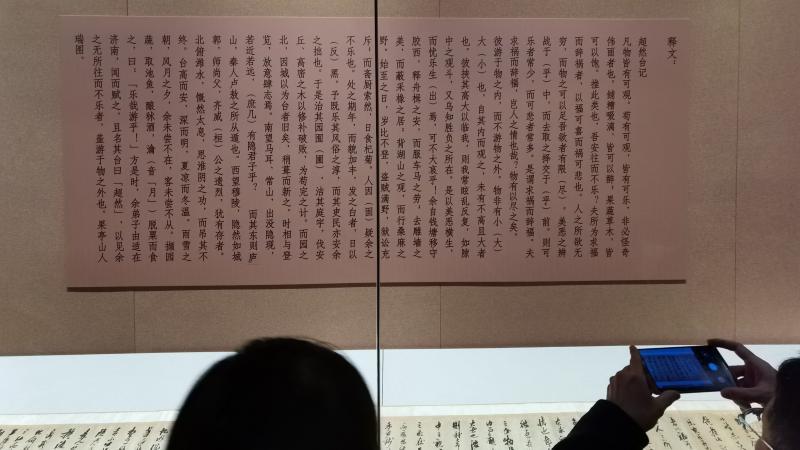 释文：
超然台记
凡物皆有可观。苟有可观，皆有可乐，非必怪奇
伟丽者也。餔糟啜漓，皆可以醉，果蔬草木，皆
可以饱。推此类也，吾安往而不乐？夫所为求福
而辞祸者，以福可喜而祸可悲也。人之所欲无
穷，而物之可以足吾欲者有限（尽）。美恶之辨
战于（乎）中，而去取之择交于（乎）前。则可
乐者常少，而可悲者常多，是谓求祸而辞福。夫
求祸而辞福，岂人之情也哉？物有以尽之矣。
彼游于物之内，而不游物之外，物非有小（大）
大（小）也，自其内而观之，未有不高且大者
也。彼挟其高大以临我，则我常眩乱反复，如隙
中之观斗，又乌知胜负之所在。是以美恶横生，
而忧乐生（出）焉，可不大哀乎！余自钱塘移守
胶西，释舟楫之安，而服车马之劳，去雕墙之
美，而蔽采椽之居；背湖山之观，而行桑麻之
野。始至之日，岁比不登，盗贼满野，狱讼充
斥，而斋厨索然，日食杞菊。人因（固）疑余之
不乐也。处之期年，而貌加丰，发之白者，日以
（反）黑。予既乐其风俗之淳，而其吏民亦安余
之拙也。于是治其园囿（圃），洁其庭宇，伐安
丘、高密之木以修补破败，为苟完之计。而园之
北，因城以为台者旧矣，稍葺而新之，时相与登
览，放意肆志焉。南望马耳、常山，出没隐现，
若近若远，（庶几）有隐君子乎？ 而其东则庐
山，秦人卢敖之所从遁也。西望穆陵，隐然如城
郭，师尚父、齐威（桓）公之遗烈，犹有存者。
北俯潍水，慨然太息，思淮阴之功，而吊其不
终。台高而安，深而明，夏凉而冬温。雨雪之
朝，风月之夕，余未尝不在，客未尝不从。撷园
蔬，取池鱼，酿秫酒，瀹（音“月”）脱粟而食
之，曰：“乐哉游乎！”方是时，余弟子由适在
济南，闻而赋之，且名其台曰“超然”，以见余
之无所往而不乐者，盖游于物之外也。果亭山人
瑞图。